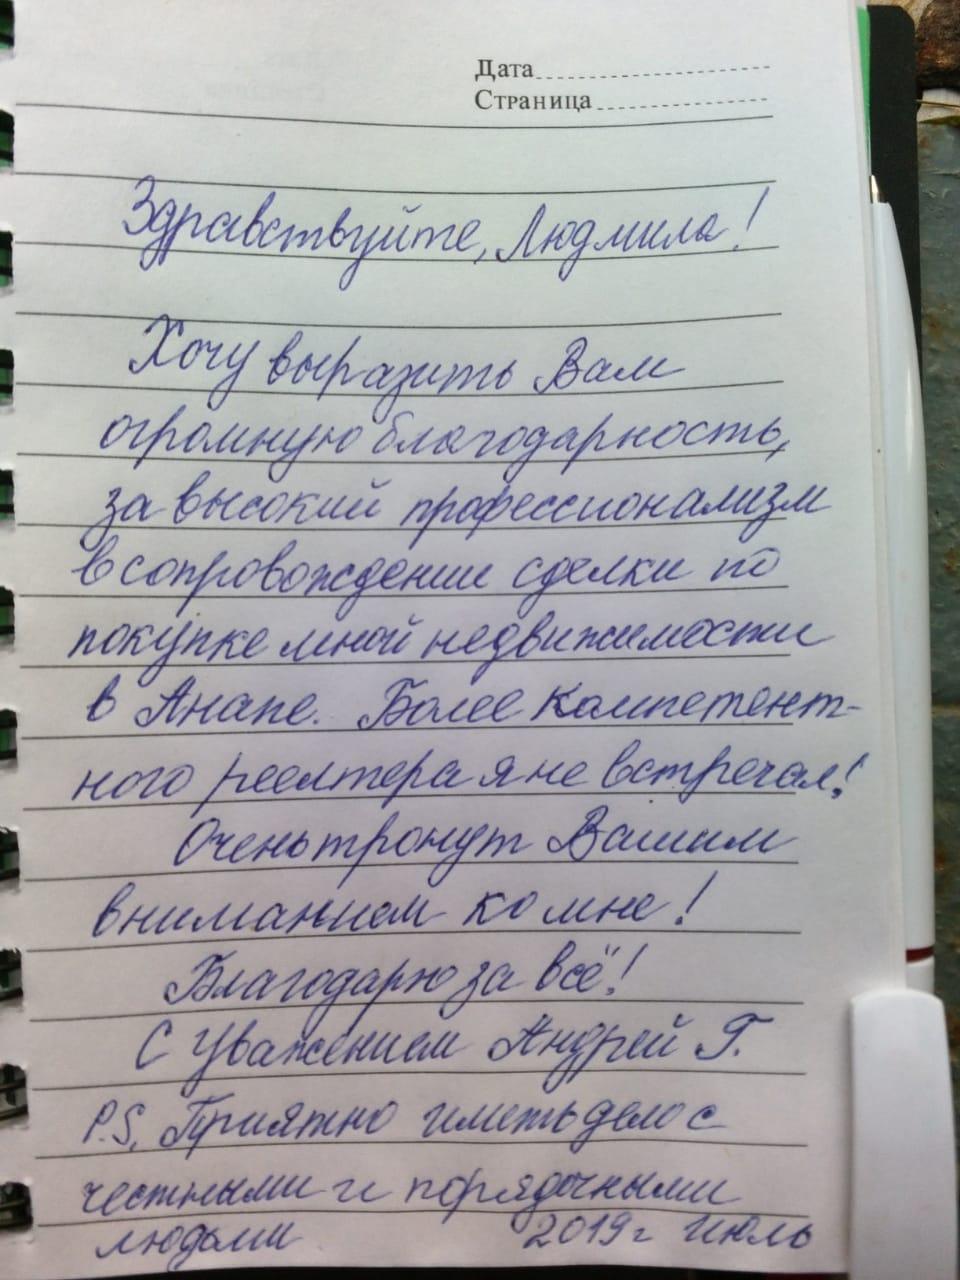 Дата
Страница
Здравствуйте, Людмила!
Хочу выразить Вам
огромную благодарность,
за высокий профессионализм
в сопровождении сделки по
покупке мной недвижимости
в Анапе. Более компетент-
ного реелтера я не встречал!
Очень тронут Вашим
вниманием ко мне!
Благодарю за всё!
С Уважением Андрей Г.
P.S. Приятно иметь дело с
честными и порядочными
людьми 2019 г Июль